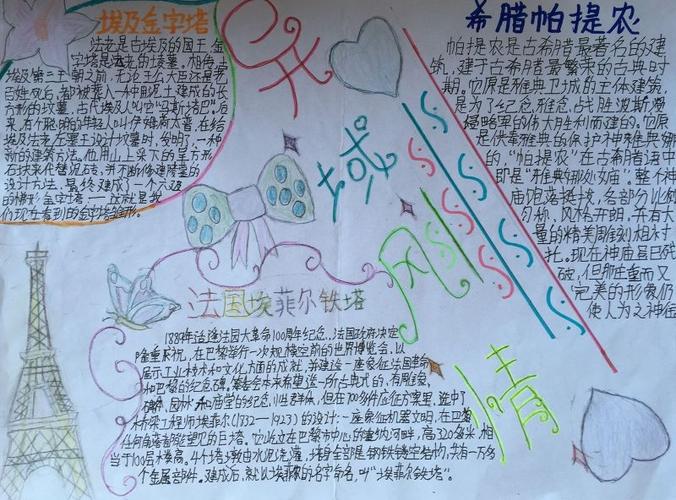 埃及金字塔
法老是古埃及的国王,金
字塔是法老的坟墓。相传,古
埃及第三王朝之前,无论王公大臣还是老
百姓死后,都被葬入一种用泥土建成的长
方形的坟墓,古代埃及人叫它"马斯塔巴"。后
来,有个聪明的年轻人叫伊姆荷太普,在给
埃及法老左塞王设计坟墓时,发明了一种
新的建筑方法。他用山上采下的呈方形
石块来代替泥砖,并不断修建陵墓的
设计方法,最终建成一个六级
的梯形金字塔——这就是我
们现在看到的金字塔雏形。
异域风情
希腊帕提农
帕提农是古希腊最著名的建
筑,建于古希腊最繁荣的古典时
期。它原是雅典卫城的主体建筑,
是为了纪念雅典战胜波斯侵
略的伟大胜利而建的。它原
是供奉雅典的保护神雅典娜
的,"帕提农"在古希腊语中
即是"雅典娜处女庙"。整个神
庙饱落挺拔,各部分比例
匀称,风格开朗,并有大
量的精美雕刻相衬
托。现在神庙虽已残
破,但那庄重而又
完美的形象仍
使人为之神往
法国埃菲尔铁塔
1889年适逢法国大革命100周年纪念,法国政府决定
隆重庆祝,在巴黎举行一次规模空前的世界博览会,以
展示工业技术和文化方面的成就,并建造一座象征法国革命
和巴黎的纪念碑。筹委会本来希望造一所古典式的,有雕象、
碑体、园林和庙堂的纪念性群体,但在700多件应征方案里,选中了
桥梁工程师埃菲尔(1732—1923)的设计:一座象征机器文明,在巴黎
任何角落都能望见的巨塔。它屹立在巴黎市中心的塞纳河畔,高320多米,相
当于100层楼高。4个塔墩由水泥浇灌,塔身全部是钢铁镂空结构,共有一万多
个金属部件。建成后,就以埃菲尔的名字命名,叫"埃菲尔铁塔"。